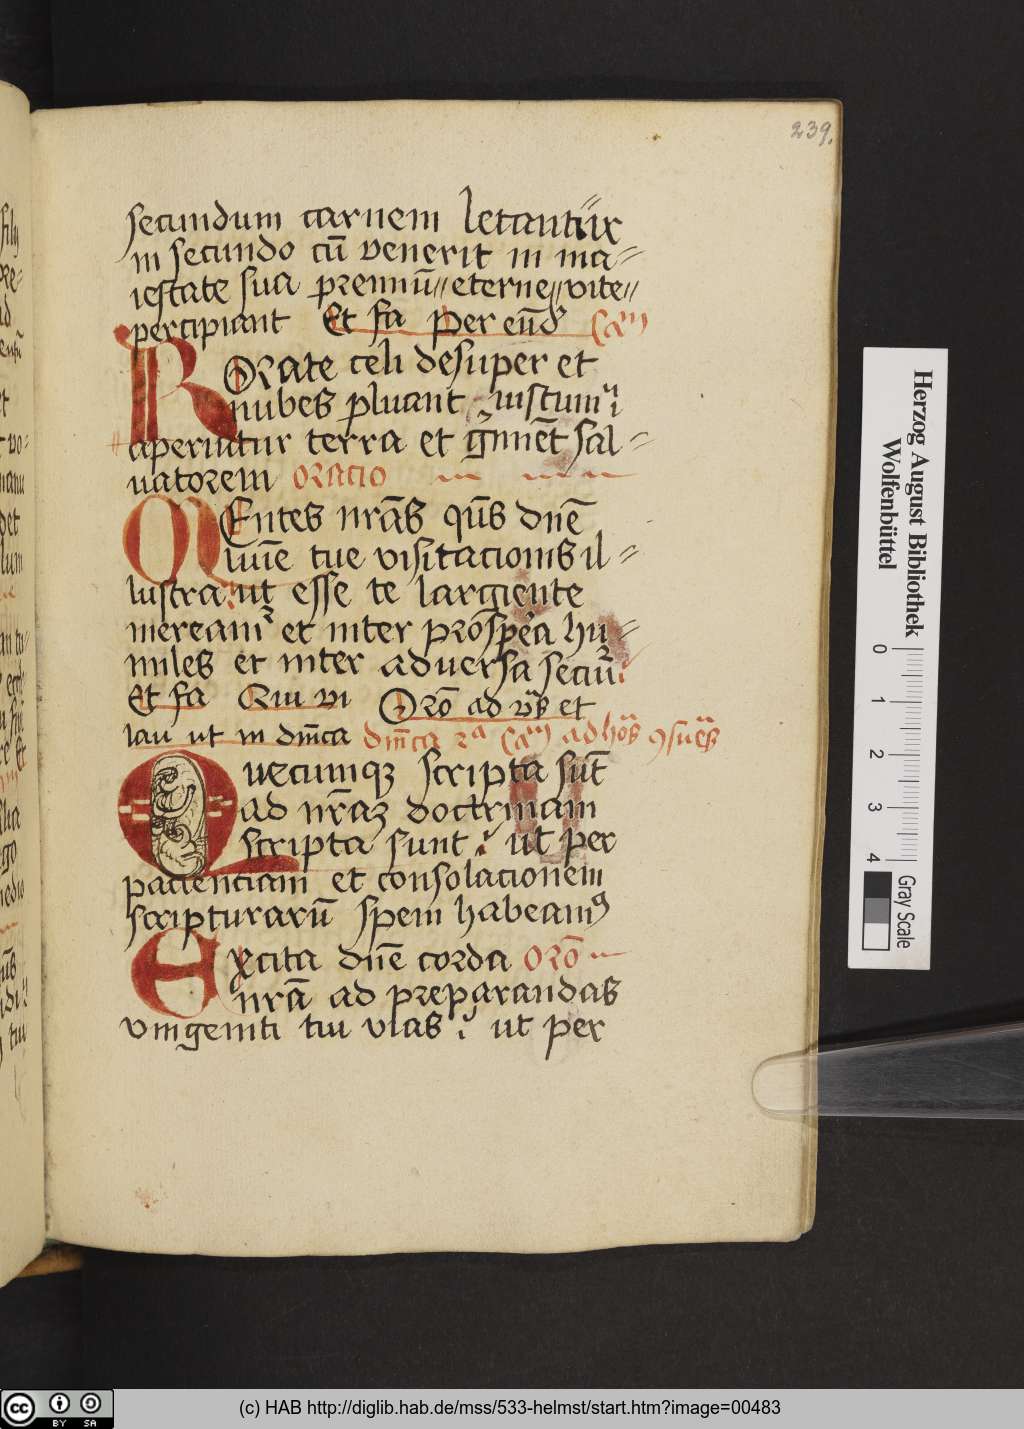 239.
secundum carnem letantur
in secundo cū venerit in ma-
iestate sua premiū eterne vite
percipiant Et fa Per eūd Cam
RORate celi desuper et
nubes pluant iustum
aperiatur terra et gmiēt sal-
uatorem ORacio
MEntes nrās qūs dnē
lumīe tue visitacionis il-
lustra ut esse te largiente
mereamr et inter prospera hu-
miles et inter aduersa secur
Et fa Qui vi Orō ad et
lau ut in dmīca dmīca 2a Cam ad
Quecumqz scripta sūt
ad nrāz doctrinam
scripta sunt ut per
pacienciam et consolacionem
scripturarū spem habeamꝰ
Excita dnē corda ORō
nrā ad preparandas
vnigeniti tui vias ut per
Herzog August Bibliothek
Wolfenbüttel
0 1 2 3 4
Gray Scale
cc BY SA
(c) HAB http://diglib.hab.de/mss/533-helmst/start.htm?image=00483